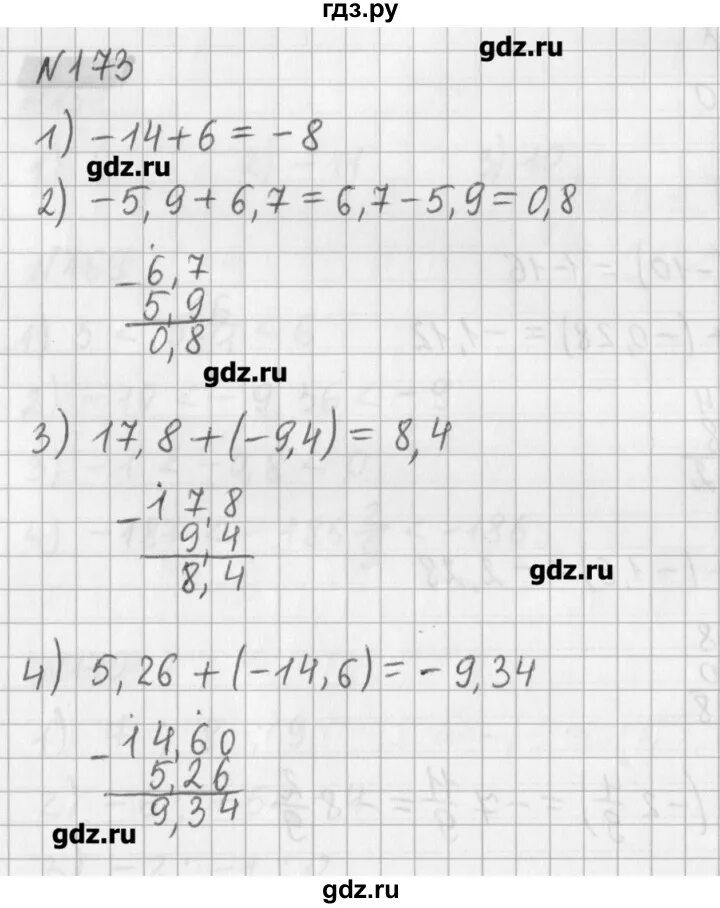 гдз.ру
gdz.ru
N 173
1) -14+6 = -8
gdz.ru
2) -5,9+6,7=6,7-5,9=0,8
-6,7
5,9
0,8
gdz.ru
3) 17,8+(-9,4)=8,4
-17,8
9,4
8,4
gdz.ru
4) 5,26+(-14,6)=-9,34
-14,60
5,26
9,34
gdz.ru
gdz.ru